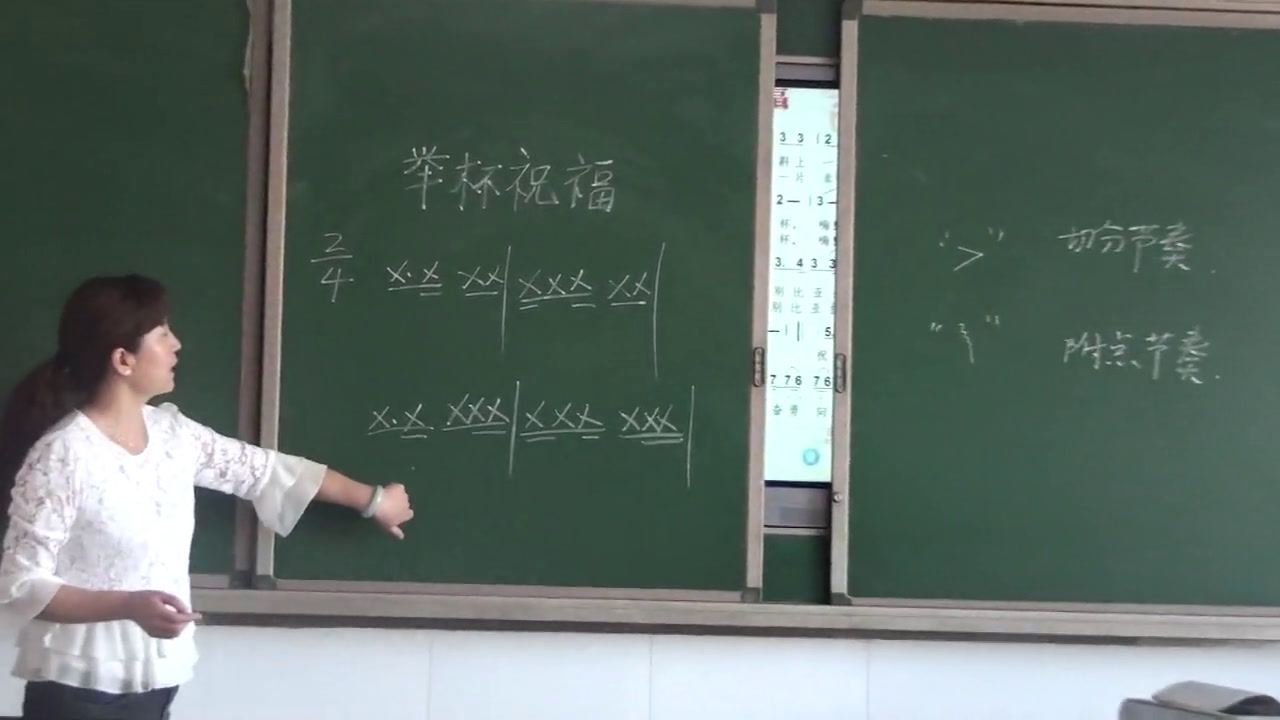 举杯祝福
2
4
X·X XX | XXX XX |
X·X XXX | XXX XXX |
福
3 3 | 2
斟上 一
一片
2 — | 3 —
杯， 嗨
杯， 嗨
3. 4 3 3
别比亚
别比亚
— | | 5
祝
7 7 6 7 6
奋勇 向
">" 切分节奏.
" " 附点节奏.